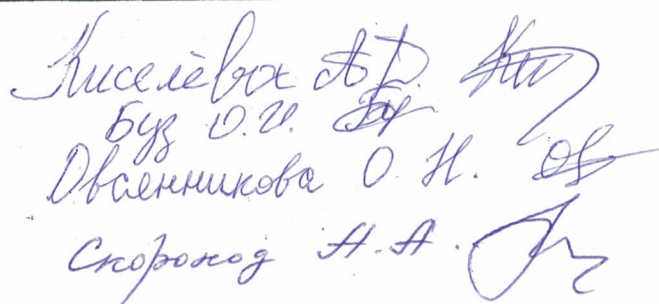 Киселёва А.Р.
Буз О.И.
Овсянникова О.Н.
Скороход А.А.